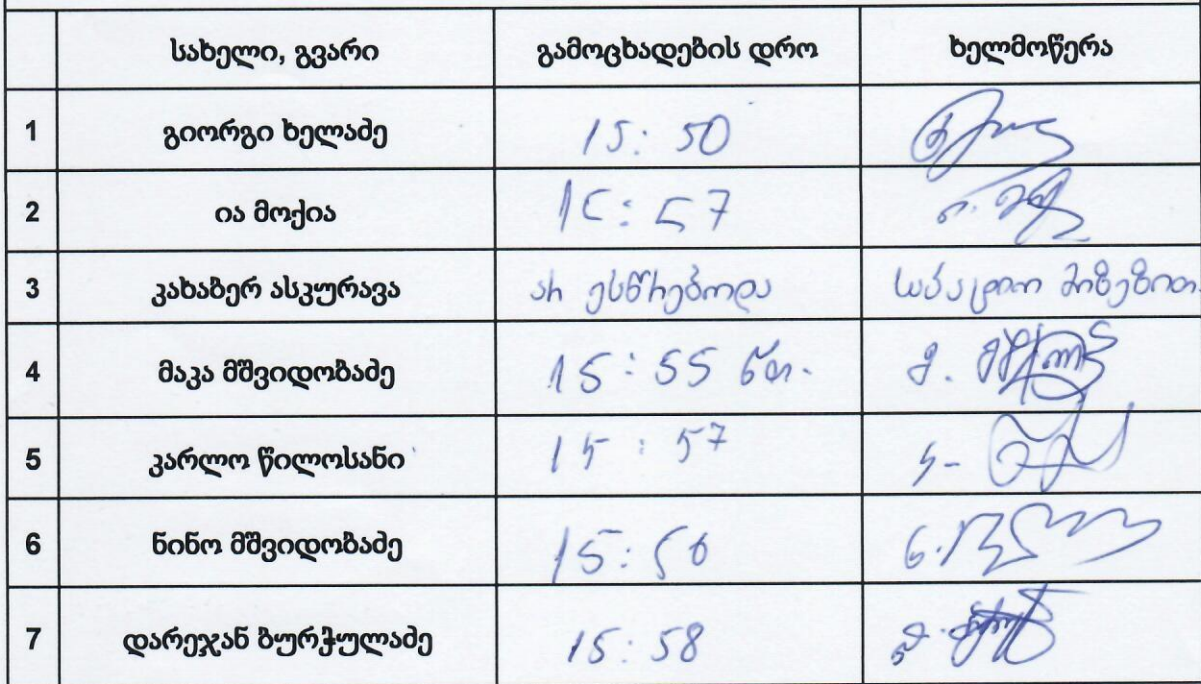 სახელი, გვარი გამოცხადების დრო ხელმოწერა
1 გიორგი ხელაძე 15:50
2 ია მოქია 15:57
3 კახაბერ ასკურავა არ ესწრებოდა საპატიო მიზეზით.
4 მაკა მშვიდობაძე 15:55 წთ.
5 კარლო წილოსანი 15:57
6 ნინო მშვიდობაძე 15:56
7 დარეჯან ბურჭულაძე 15:58